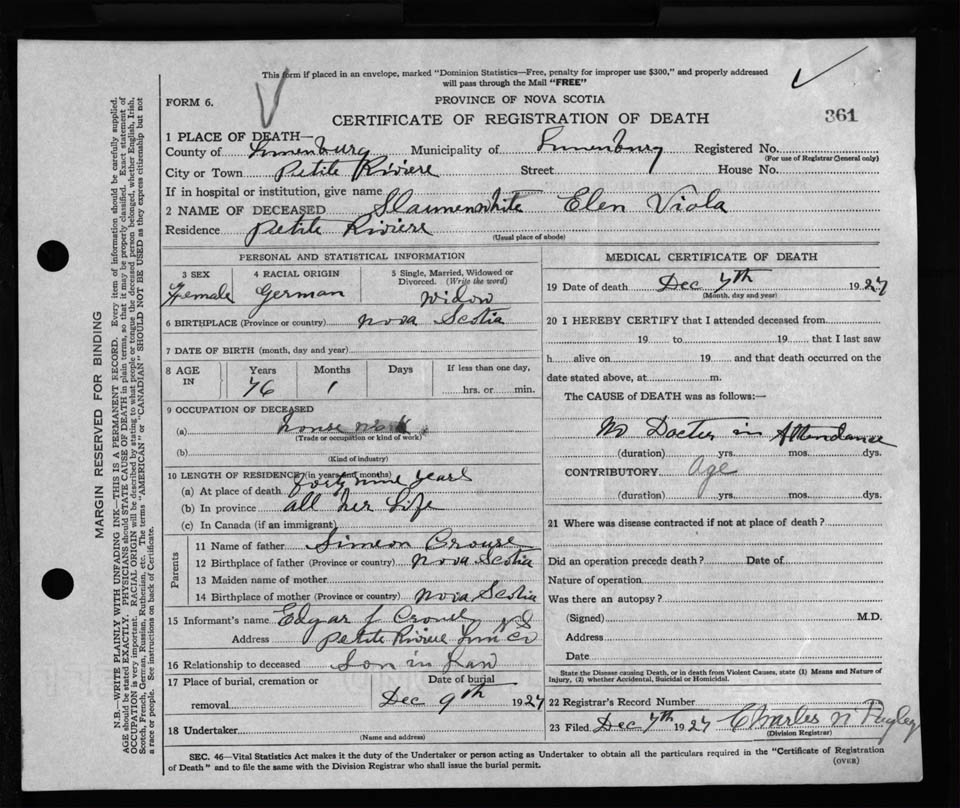 This form if placed in an envelope, marked "Dominion Statistics—Free, penalty for improper use $300," and properly addressed
will pass through the Mail "FREE"
FORM 6.
PROVINCE OF NOVA SCOTIA
CERTIFICATE OF REGISTRATION OF DEATH
361
1 PLACE OF DEATH—
County of Lunenburg Municipality of Lunenburg Registered No.
(For use of Registrar General only)
City or Town Petite Riviere Street House No.
If in hospital or institution, give name
2 NAME OF DECEASED Slaunenwhite Elen Viola
Residence Petite Riviere
(Usual place of abode)
PERSONAL AND STATISTICAL INFORMATION
3 SEX Female
4 RACIAL ORIGIN German
5 Single, Married, Widowed or Divorced. (Write the word) Widow
6 BIRTHPLACE (Province or country) Nova Scotia
7 DATE OF BIRTH (month, day and year)
8 AGE IN Years Months Days If less than one day,
76 1 hrs. or min.
9 OCCUPATION OF DECEASED
(a) house work
(Trade or occupation or kind of work)
(b)
(Kind of industry)
10 LENGTH OF RESIDENCE (in years and months)
(a) At place of death forty nine years
(b) In province all her Life
(c) In Canada (if an immigrant)
Parents
11 Name of father Simeon Crouse
12 Birthplace of father (Province or country) Nova Scotia
13 Maiden name of mother
14 Birthplace of mother (Province or country) Nova Scotia
15 Informant's name Edgar J Crouse
Address Petite Riviere Lun Co N S
16 Relationship to deceased Son in Law
17 Place of burial, cremation or removal Date of burial
Dec 9th 1927
18 Undertaker
(Name and address)
MEDICAL CERTIFICATE OF DEATH
19 Date of death Dec 7th 1927
(Month, day and year)
20 I HEREBY CERTIFY that I attended deceased from
19 to 19 that I last saw
h alive on 19 and that death occurred on the
date stated above, at m.
The CAUSE of DEATH was as follows:—
No Docter in Attendance
(duration) yrs. mos. dys.
CONTRIBUTORY Age
(duration) yrs. mos. dys.
21 Where was disease contracted if not at place of death?
Did an operation precede death? Date of
Nature of operation
Was there an autopsy?
(Signed) M.D.
Address
Date
State the Disease causing Death, or in death from Violent Causes, state (1) Means and Nature of
Injury, (2) whether Accidental, Suicidal or Homicidal.
22 Registrar's Record Number
23 Filed Dec 7th 1927 Charles N
(Division Registrar)
SEC. 46—Vital Statistics Act makes it the duty of the Undertaker or person acting as Undertaker to obtain all the particulars required in the "Certificate of Registration
of Death" and to file the same with the Division Registrar who shall issue the burial permit.
(OVER)
MARGIN RESERVED FOR BINDING
N.B.—WRITE PLAINLY WITH UNFADING INK—THIS IS A PERMANENT RECORD. Every item of information should be carefully supplied.
AGE should be stated EXACTLY. PHYSICIANS should STATE CAUSE OF DEATH in plain terms, so that it may be properly classified. Exact statement of
OCCUPATION is very important. RACIAL ORIGIN will be described by stating to what people or tongue the deceased person belonged, whether English, Irish,
Scotch, French, German, Russian, Ruthenian, etc. The terms "AMERICAN" or "CANADIAN" SHOULD NOT BE USED as they express citizenship but not
a race or people. See instructions on back of Certificate.